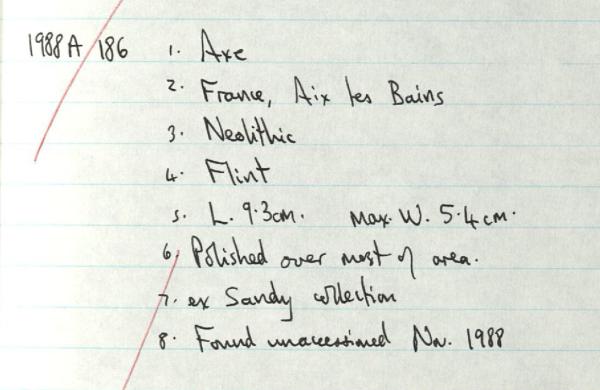 1988A 186 1. Axe
2. France, Aix les Bains
3. Neolithic
4. Flint
5. L. 9.3cm. Max. W. 5.4cm.
6. Polished over most of area.
7. ex Sandy collection
8. Found unaccessioned Nov. 1988